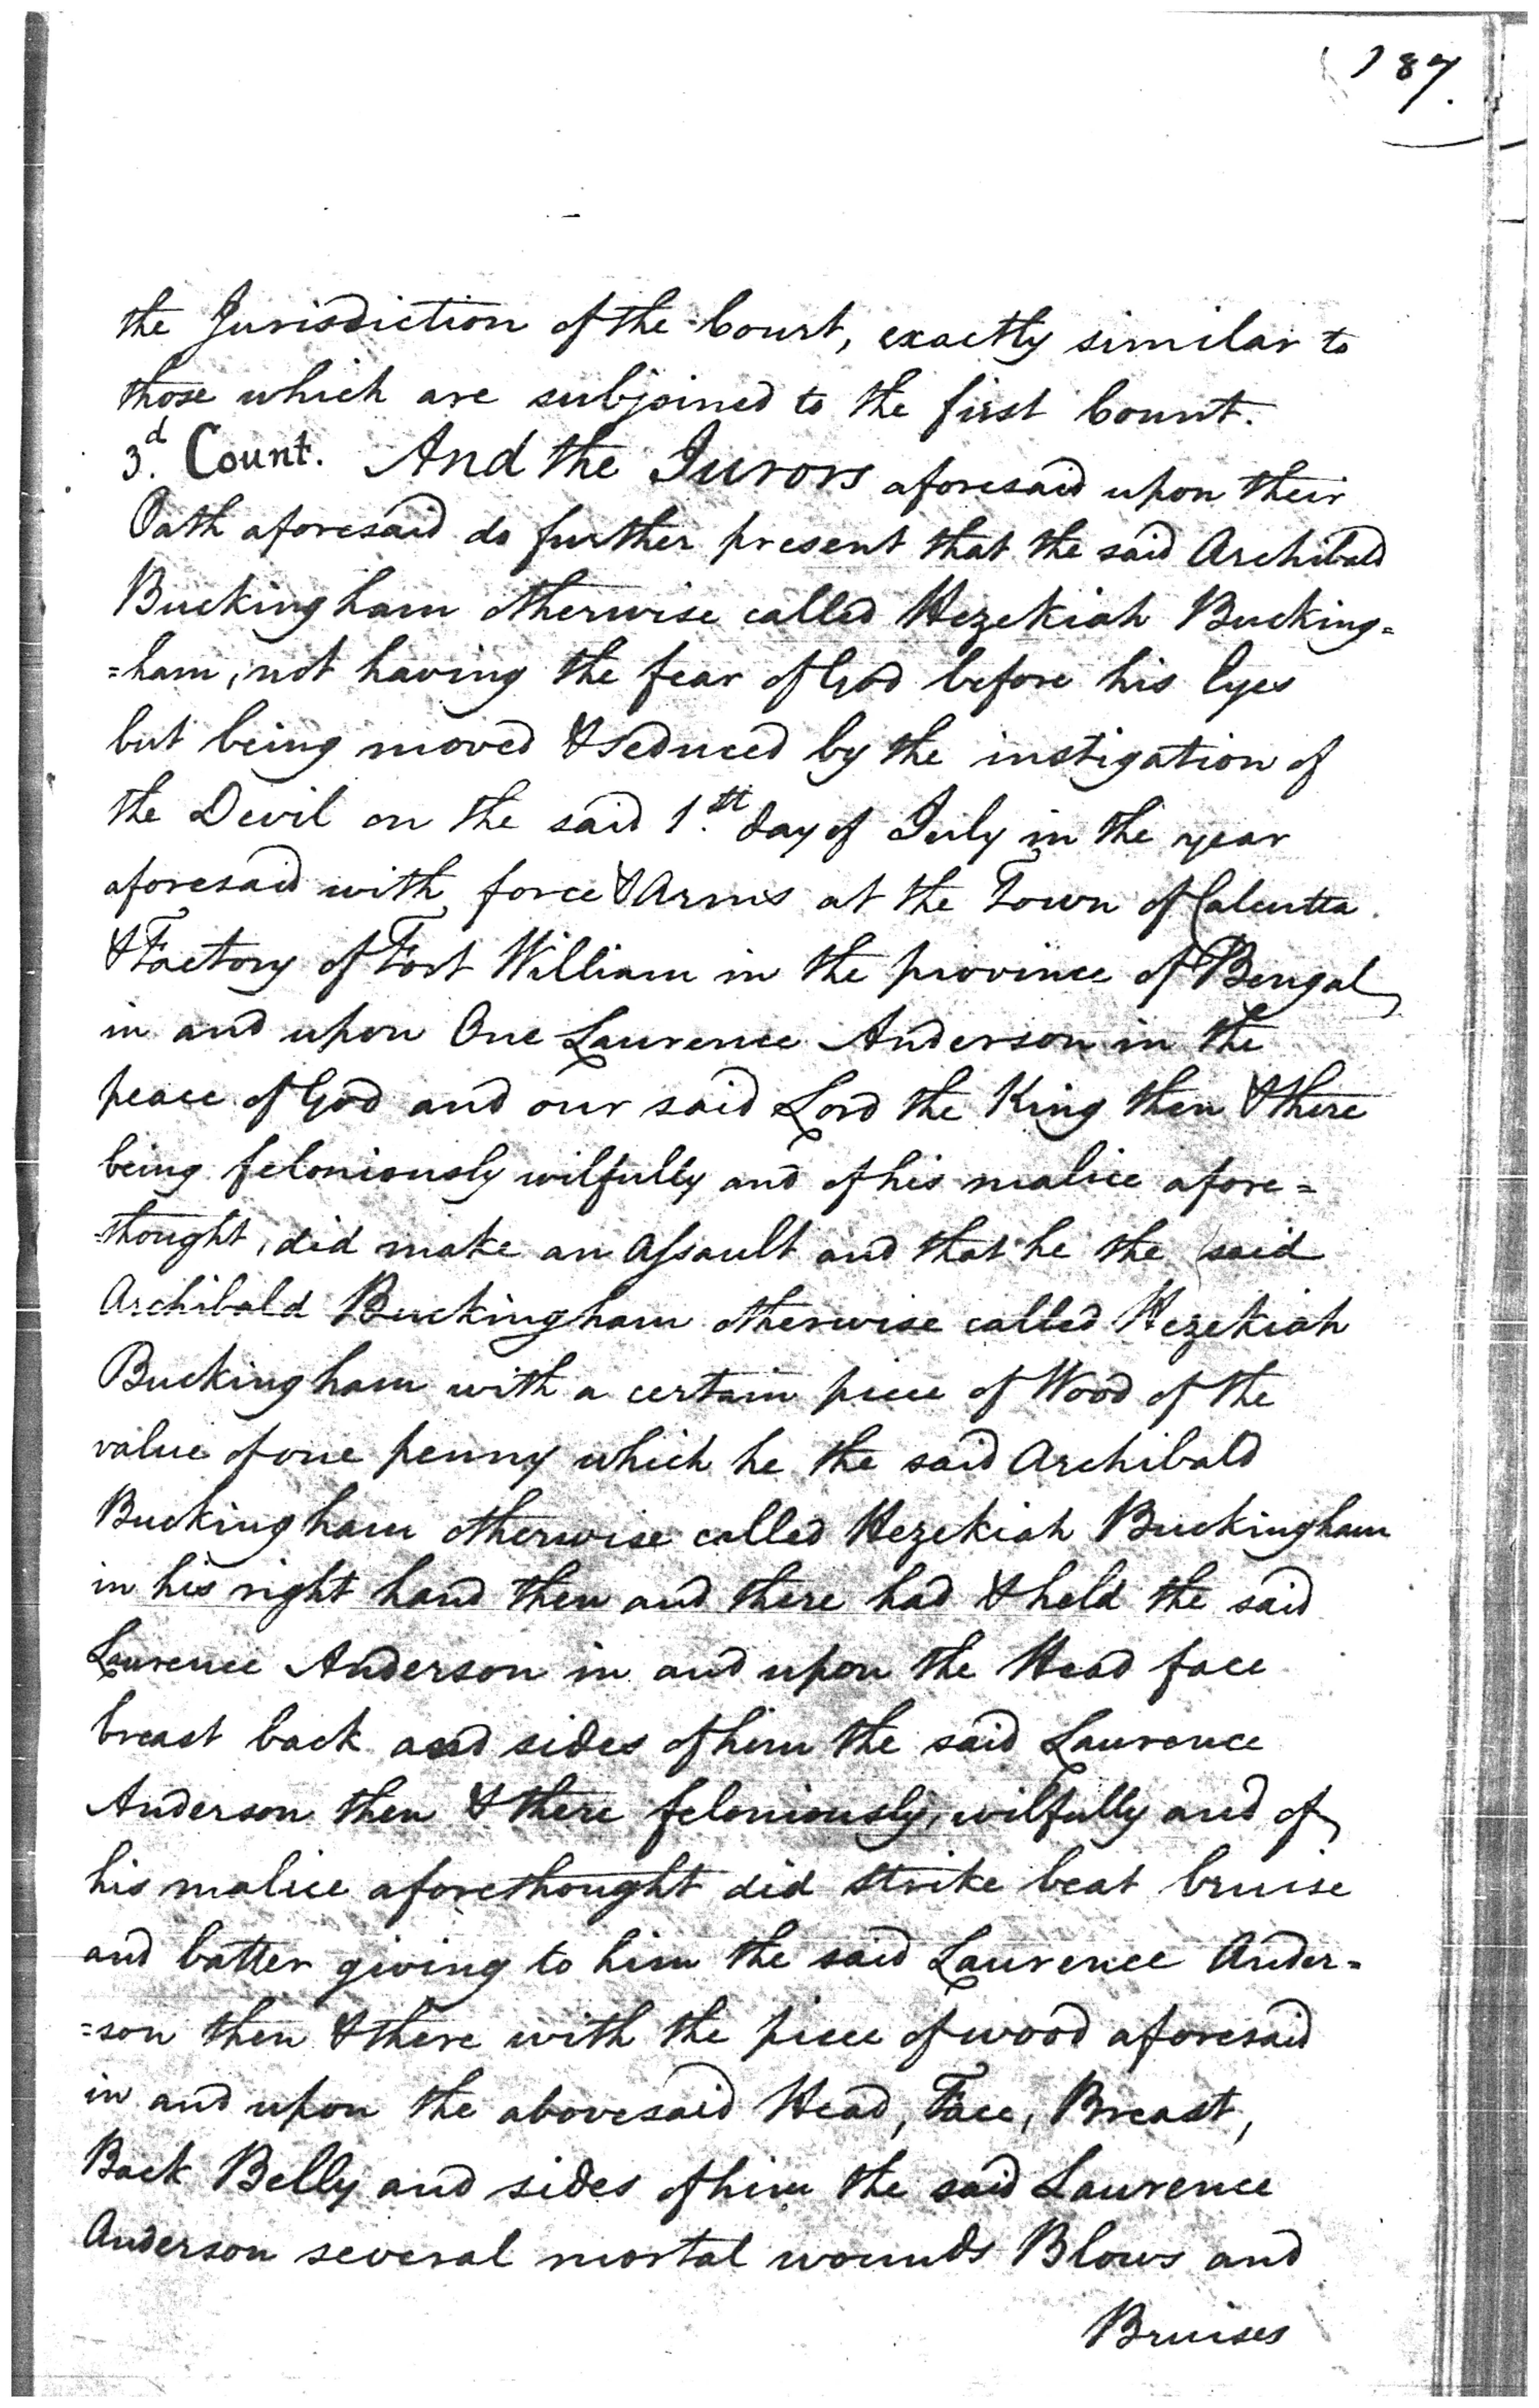 187.
the Jurisdiction of the Court, exactly similar to
those which are subjoined to the first Count.
3d. Count. And the Jurors aforesaid upon their
Oath aforesaid do further present that the said Archibald
Buckingham otherwise called Hezekiah Bucking=
=ham, not having the fear of God before his Eyes
but being moved & seduced by the instigation of
the Devil on the said 1.st day of July in the year
aforesaid with force & Arms at the Town of Calcutta
& Factory of Fort William in the province of Bengal
in and upon One Laurence Anderson in the
peace of God and our said Lord the King then & there
being feloniously wilfully and of his malice afore=
=thought, did make an Assault and that he the said
Archibald Buckingham otherwise called Hezekiah
Buckingham with a certain piece of Wood of the
value of one penny which he the said Archibald
Buckingham otherwise called Hezekiah Buckingham
in his right hand then and there had & held the said
Laurence Anderson in and upon the Head face
breast back and sides of him the said Laurence
Anderson then & there feloniously, wilfully and of
his malice aforethought did strike beat bruise
and batter giving to him the said Laurence Ander=
=son then & there with the piece of wood aforesaid
in and upon the abovesaid Head, Face, Breast,
Back Belly and sides of him the said Laurence
Anderson several mortal wounds Blows and
Bruises